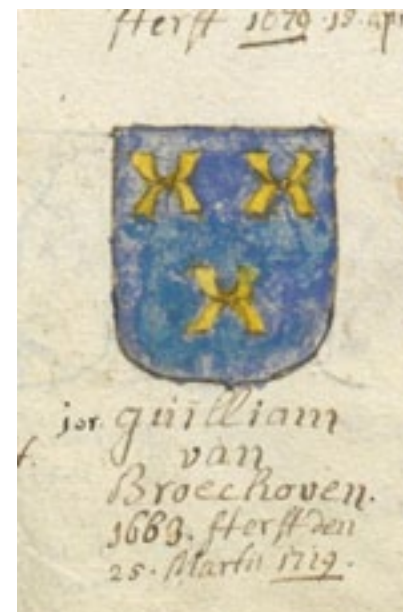 sterft 1679 . 18 . apr
jor. guilliam
f. van
Broechoven.
1663. sterft den
25. Martii 1719.